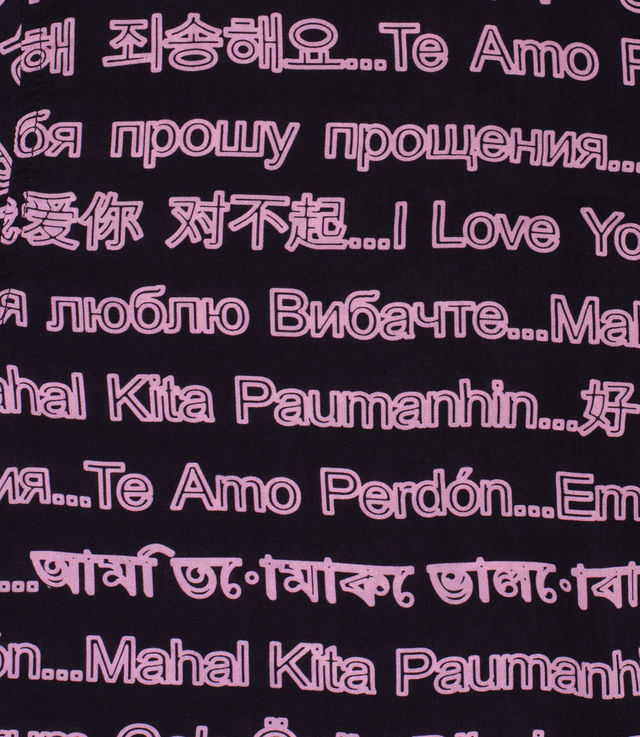 해 죄송해요...Te Amo P
бя прошу прощения...
爱你 对不起...I Love Yo
я люблю Вибачте...Mal
ahal Kita Paumanhin...好
ия...Te Amo Perdón...Em
...আমি তোমাকে ভালোবা
ón...Mahal Kita Paumanhi